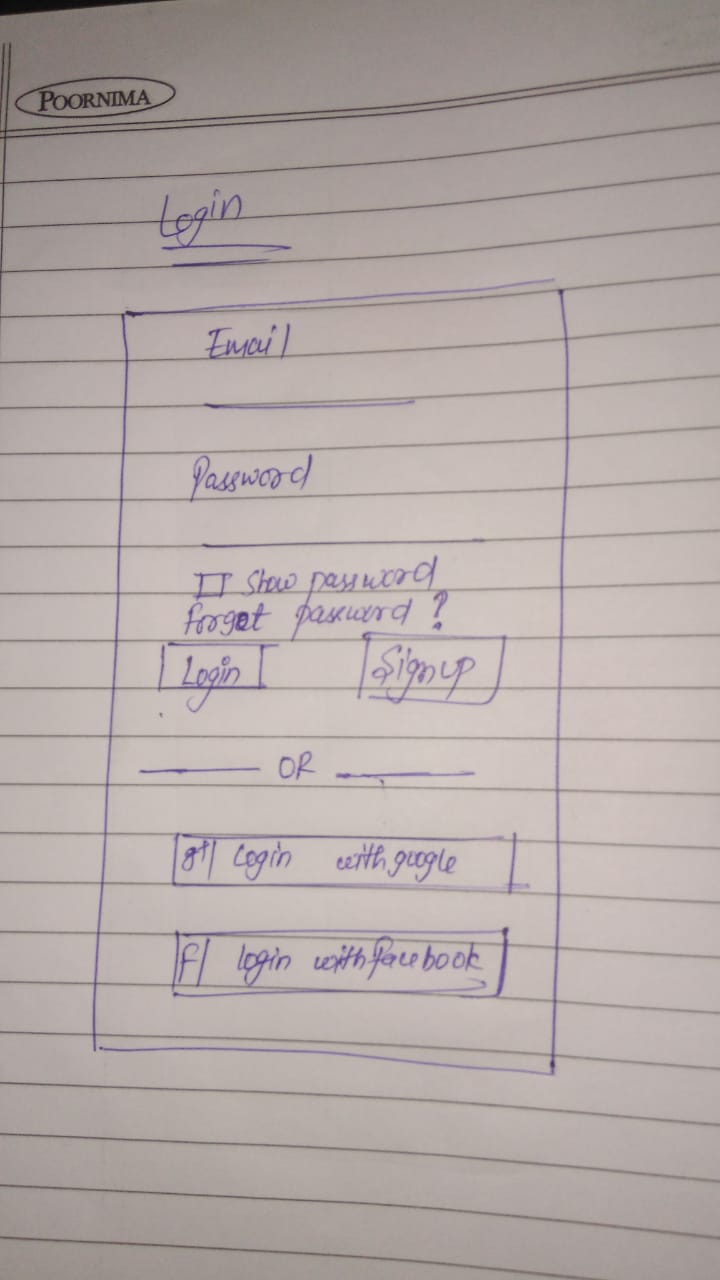 POORNIMA
Login
Email
Password
Show password
Forget password ?
Login Signup
OR
g+ Login with google
F login with facebook